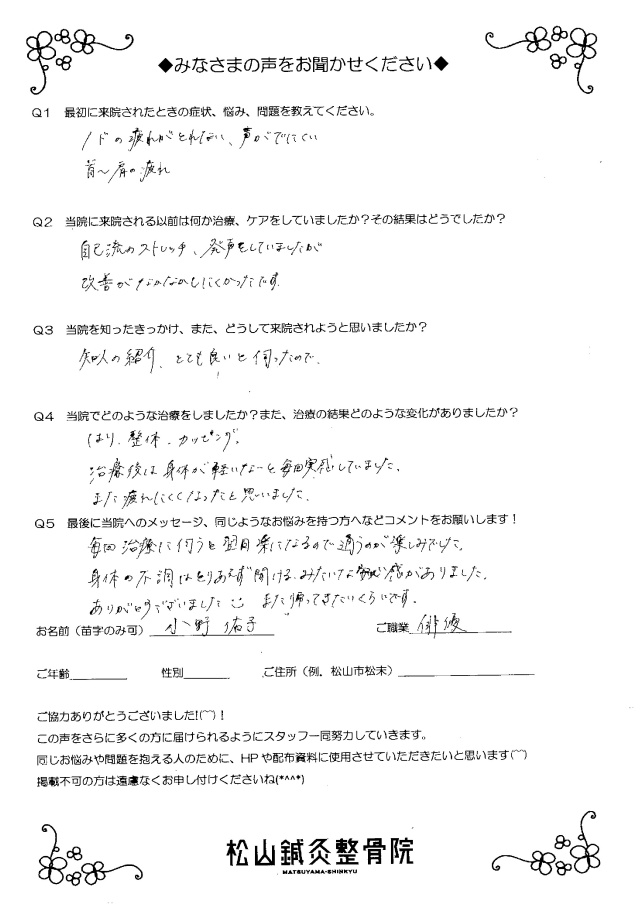 ◆みなさまの声をお聞かせください◆
Q1 最初に来院されたときの症状、悩み、問題を教えてください。
ノドの疲れがとれない、声がでにくい
首〜肩の疲れ
Q2 当院に来院される以前は何か治療、ケアをしていましたか？その結果はどうでしたか？
自己流のストレッチ、発声をしていましたが
改善がなかなかしにくかったです.
Q3 当院を知ったきっかけ、また、どうして来院されようと思いましたか？
知人の紹介、とても良いと伺ったので.
Q4 当院でどのような治療をしましたか？また、治療の結果どのような変化がありましたか？
はり、整体、カッピング.
治療後は身体が軽いなーと毎回実感していました.
また疲れにくくなったと思いました.
Q5 最後に当院へのメッセージ、同じようなお悩みを持つ方へなどコメントをお願いします！
毎回治療に伺うと翌日楽になるので通うのが楽しみでした.
身体の不調はとりあえず聞ける、みたいな安心感がありました.
ありがとうございました また帰ってきたいくらいです.
お名前（苗字のみ可） 小野 佑子 ご職業 俳優
ご年齢 性別 ご住所（例．松山市松末）
ご協力ありがとうございました!(⌒)！
この声をさらに多くの方に届けられるようにスタッフ一同努力していきます。
同じお悩みや問題を抱える人のために、HPや配布資料に使用させていただきたいと思います(⌒)
掲載不可の方は遠慮なくお申し付けくださいね(*^^*)
松山鍼灸整骨院
MATSUYAMA-SHINKYU